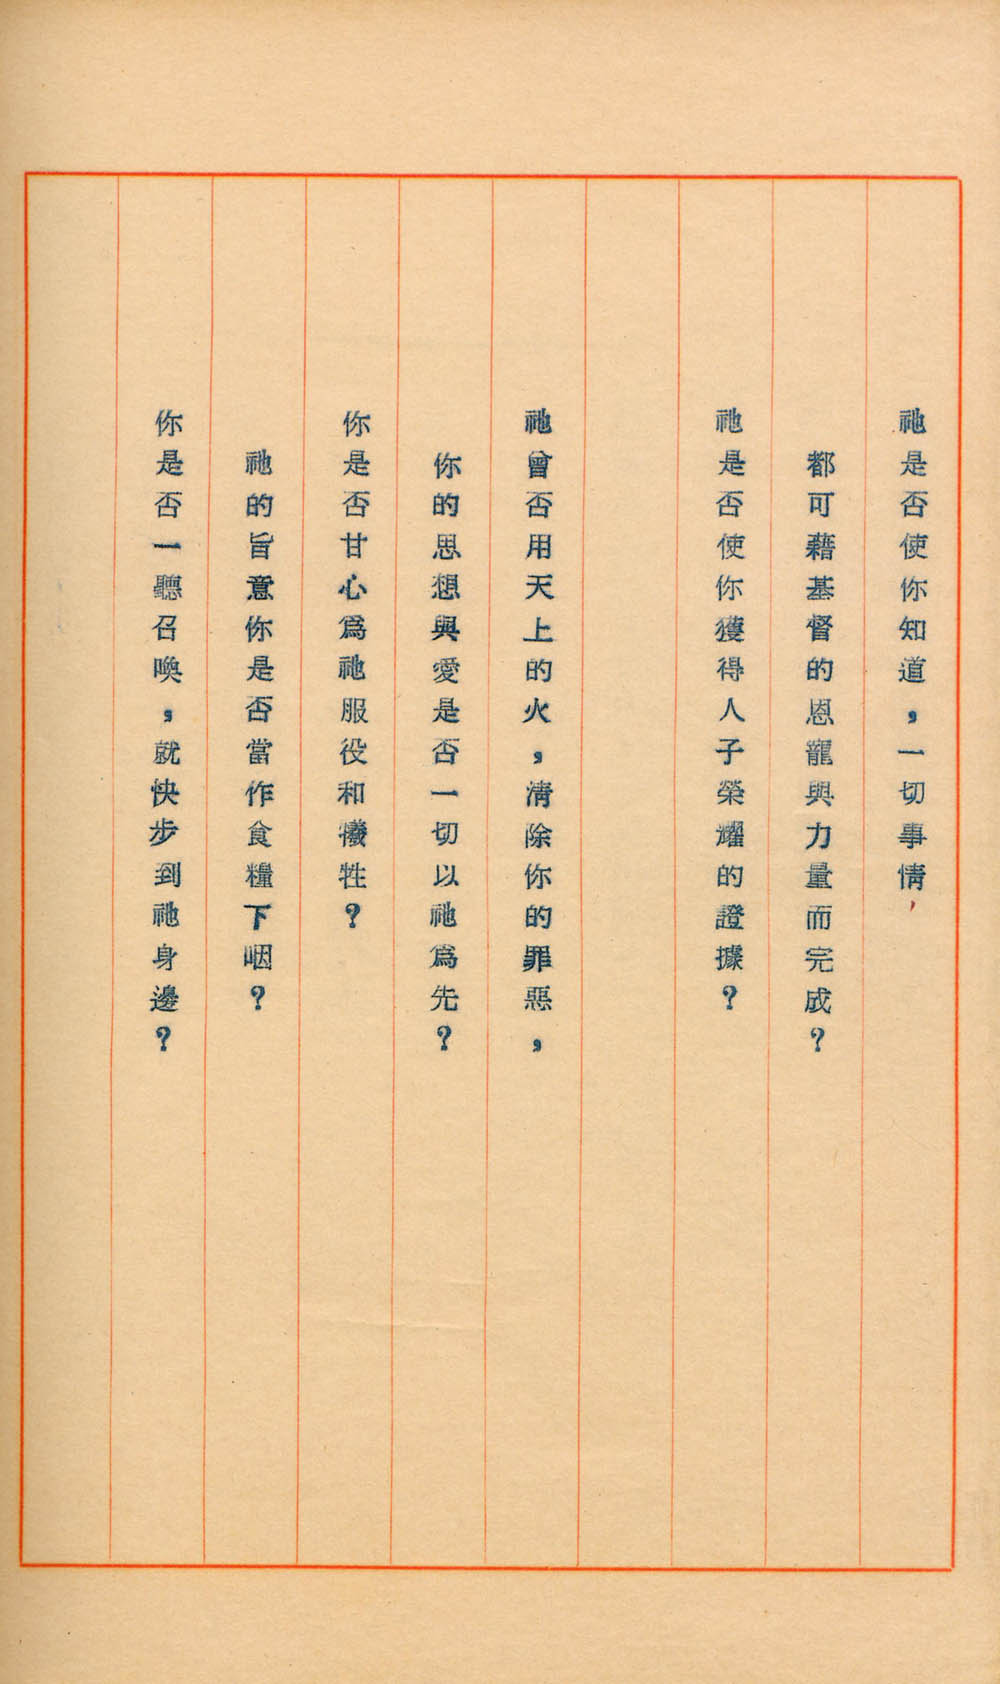 祂是否使你知道，一切事情，
都可藉基督的恩寵與力量而完成？
祂是否使你獲得人子榮耀的證據？
祂曾否用天上的火，清除你的罪惡，
你的思想與愛是否一切以祂為先？
你是否甘心為祂服役和犧牲？
祂的旨意你是否當作食糧下咽？
你是否一聽召喚，就快步到祂身邊？